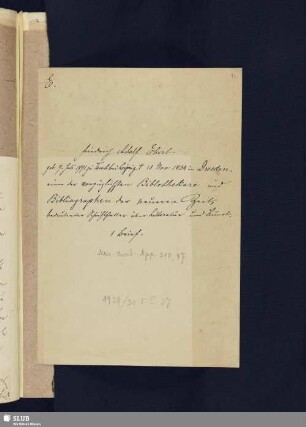 E.
Friedrich Adolf Ebert
geb. 9. Juli 1791 zu Taucha bei Leipzig † 13 Nov. 1834 in Dresden,
einer der vorzüglichsten Bibliothekare und
Bibliographen der neueren Zeit,
bedeutender Schriftsteller über Litteratur und Kunst.
1 Brief.
Mscr. Dresd. App. 210, 47
SLUB